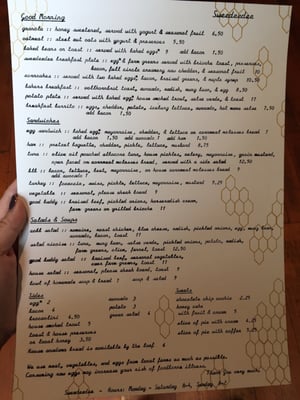 Good Morning Sweedeedee
granola :: honey sweetened, served with yogurt & seasonal fruit 6.50
oatmeal :: steel cut oats with yogurt & preserves 5.50
baked beans on toast :: served with baked egg* 9 add bacon 1.50
sweedeedee breakfast plate :: egg* & farm greens served with bricia toast, preserves,
bacon, fall citrus rosemary new cheddar, & seasonal fruit 10
served with two baked eggs*, bacon, braised greens, & maple syrup 10.50
bakers breakfast :: softboiled toast, avocado, radish, mung bean, & egg 8.50
potato plate :: served with baked egg* house smoked trout, salsa verde, toast 11
breakfast burrito :: eggs, cheddar, potato, turkey lettuce, avocado, hot mama salsa 7.50
add bacon 9.50
Sandwiches
egg sandwich :: baked egg*, mayonnaise, cheddar, & lettuce on cornmeal molasses bread 7
add bacon 1.50 add avocado 1 add ham 2.50
ham :: pretzel baguette, cheddar, pickle, lettuce, mustard 8.75
tuna :: olive oil poached albacore tuna, house pickles, celery, mayonnaise, grain mustard,
open faced on cornmeal molasses bread, served with a side salad 12.50
blt :: bacon, lettuce, beet, mayonnaise, on house cornmeal molasses bread 9
add avocado 1
turkey :: focaccia, swiss, pickle, lettuce, mayonnaise, mustard 9.25
vegetable :: seasonal, please check board 9
good buddy :: braised beef, pickled onions, horseradish cream,
farm greens on grilled brioche 11
Salads & Soups
cobb salad :: romaine, roast chicken, blue cheese, radish, pickled onions, egg, navy bean,
avocado, bacon, toast 11
salad nicoise :: tuna, mung bean, salsa verde, pickled onions, potato, radish,
farm greens, olive, fennel, toast 12.50
good buddy salad :: braised beef, seasonal vegetables,
over farm greens, toast 11
house salad :: seasonal, please check board, toast 9
bowl of homemade soup & bread 7 soup & salad 9
Sides
egg* 2
bacon 4
4.50
house smoked trout 5
toast & house preserves
or toast honey 3.50
house cornmeal bread is available by the loaf 6
avocado 2
potato 3
green salad 4
Sweets
chocolate chip cookie 2.25
honey cake
with fruit & cream 5
slice of pie with cream 5.25
slice of pie with coffee 5.25
We use meat, vegetables, and eggs from local farms as much as possible.
Consuming raw eggs may increase your risk of foodborne illness.
Thank you very much.
Sweedeedee - Hours: Monday - Saturday 8-4, Sunday 8-2